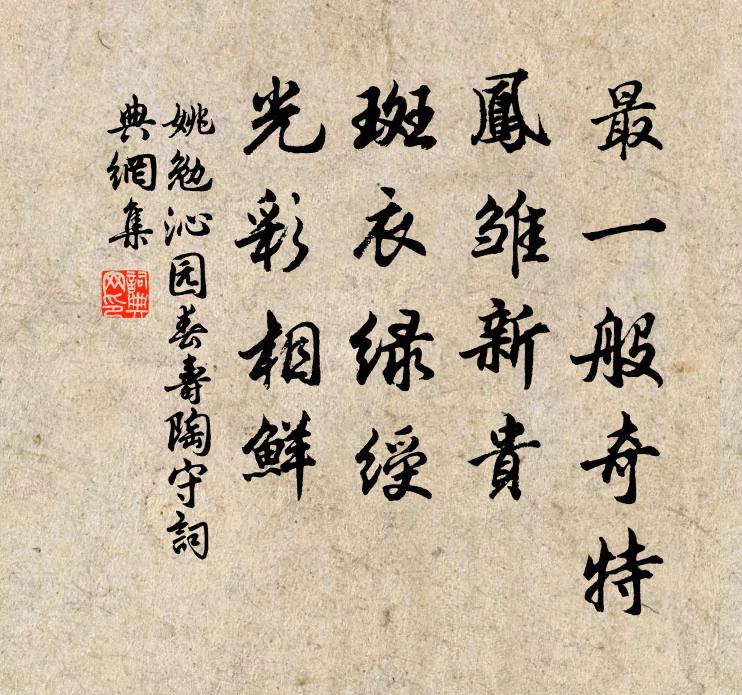 最一般奇特
鳳雏新貴
斑衣绿綬
光彩相鮮
姚勉沁园春壽陶守詞
典網集
詞典
网印